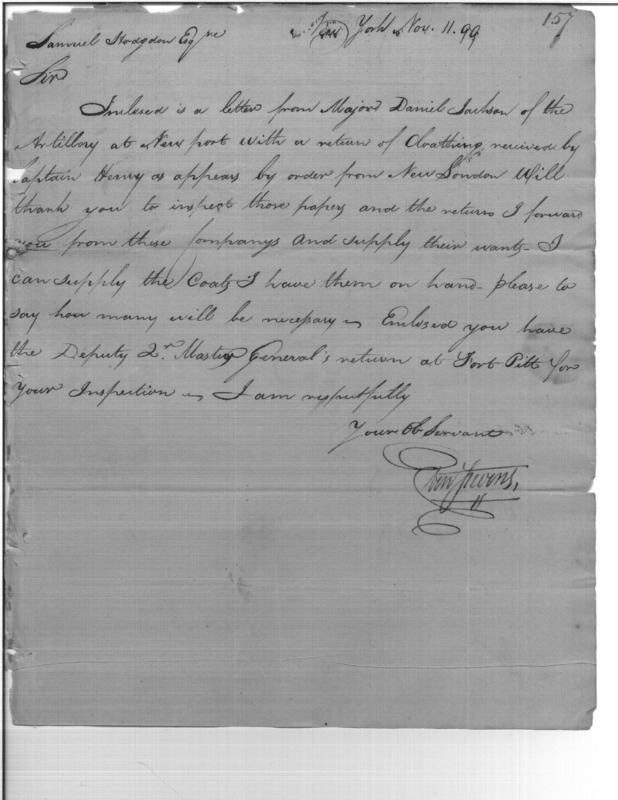 157
York Nov. 11. 99
Samuel Hodgdon Esqre
Sir
Inclosed is a letter from Major Daniel Jackson of the
Artillery at New port with a return of Cloathing recieved by
Captain Henry as appears by order from New London Will
thank you to inspect those papers and the returns I forward
you from these Companys and supply their wants - I
can supply the Coats I have them on hand - please to
say how many will be necessary - Enclosed you have
the Deputy Qr. Master General's return at Fort Pitt for
Your Inspection - I am respectfully
Your Ob Servant
Stevens